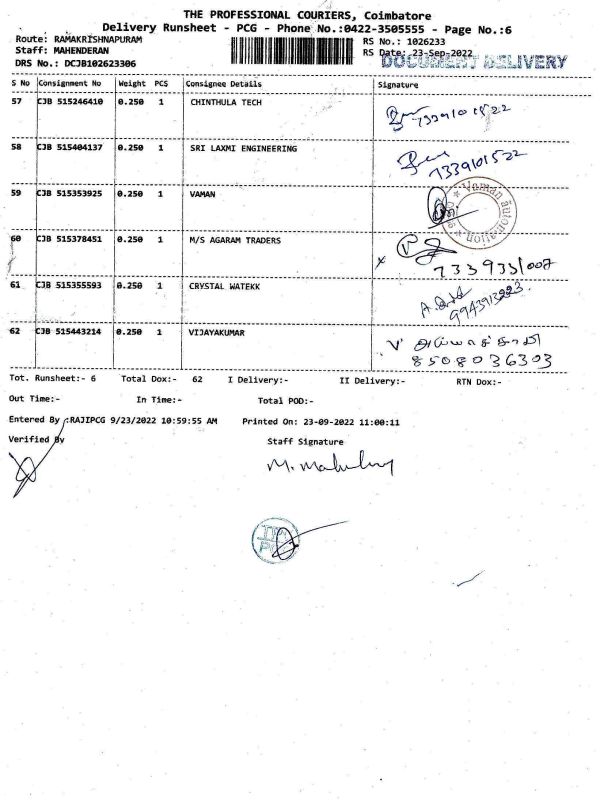 THE PROFESSIONAL COURIERS, Coimbatore
Delivery Runsheet - PCG - Phone No.:0422-3505555 - Page No.:6
Route: RAMAKRISHNAPURAM RS No.: 1026233
Staff: MAHENDERAN RS Date: 23-Sep-2022
DRS No.: DCJB102623306 DOCUMENT DELIVERY
S No Consignment No Weight PCS Consignee Details Signature
57 CJB 515246410 0.250 1 CHINTHULA TECH
7339101522
58 CJB 515404137 0.250 1 SRI LAXMI ENGINEERING
7339101522
59 CJB 515353925 0.250 1 VAMAN
Vaman automation
60 CJB 515378451 0.250 1 M/S AGARAM TRADERS
7339331007
61 CJB 515355593 0.250 1 CRYSTAL WATEKK
9943913223
62 CJB 515443214 0.250 1 VIJAYAKUMAR
8508036303
Tot. Runsheet:- 6 Total Dox:- 62 I Delivery:- II Delivery:- RTN Dox:-
Out Time:- In Time:- Total POD:-
Entered By :RAJIPCG 9/23/2022 10:59:55 AM Printed On: 23-09-2022 11:00:11
Verified By Staff Signature